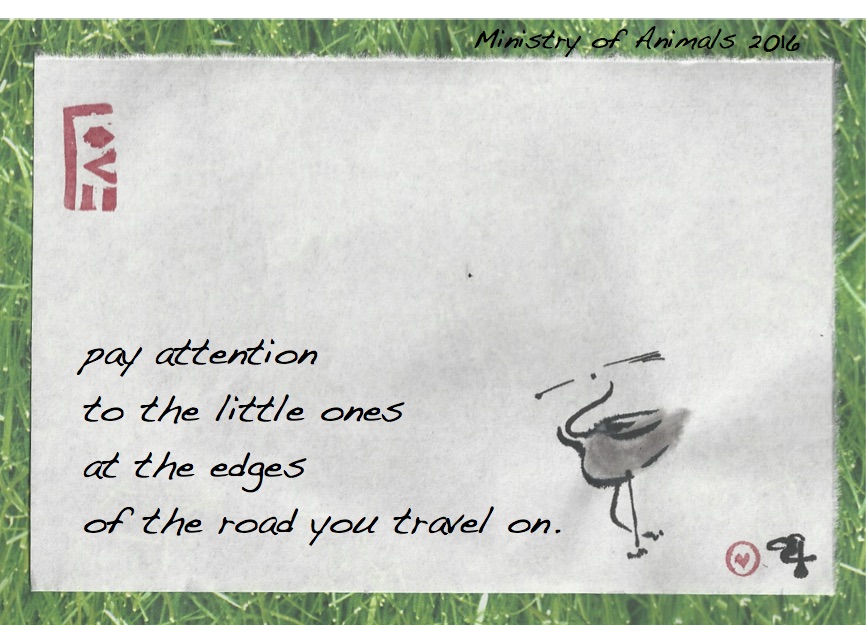 Ministry of Animals 2016
LOVE
pay attention
to the little ones
at the edges
of the road you travel on.